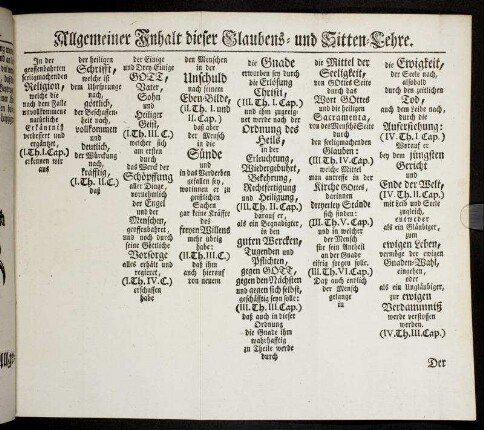 Allgemeiner Inhalt dieser Glaubens- und Sitten-Lehre.
In der
geoffenbahrten
seeligmachenden
Religion,
welche die
nach dem Falle
unvollkommene
natürliche
Erkäntniß
verbessert und
ergäntzet,
(I.Th.I.Cap.)
erkennen wir
aus
der heiligen
Schrifft,
welche ist
dem Uhrsprunge
nach,
göttlich,
der Beschaffen-
heit nach,
vollkommen
und
deutlich,
der Würckung
nach,
kräfftig,
(I.Th. II.C.)
daß
der Einige
und Drey-Einige
GOTT,
Vater,
Sohn
und
Heiliger
Geist,
(I.Th. III.C.)
welcher sich
am ersten
durch
das Werck der
Schöpffung
aller Dinge,
vornehmlich
der Engel
und der
Menschen,
geoffenbahret,
und noch durch
seine Göttliche
Vorsorge
alles erhält und
regieret,
(I.Th. IV.C.)
erschaffen
habe
den Menschen
in der
Unschuld
nach seinem
Eben-Bilde,
(II.Th. I. und
II. Cap.)
daß aber
der Mensch
in die
Sünde
und
in das Verderben
gefallen sey,
worinnen er zu
geistlichen
Sachen
gar keine Kräffte
des
freyen Willens
mehr übrig
habe:
(II.Th.III.C.)
daß ihm
auch hierauf
von neuen
die Gnade
erworben sey durch
die Erlösung
Christi,
(III. Th. I. Cap.)
und ihm zugeeig-
net werde nach der
Ordnung des
Heils,
in der
Erleuchtung,
Wiedergeburt,
Bekehrung,
Rechtfertigung
und Heiligung,
(III. Th. II. Cap.)
darauf er,
als ein Begnadigter,
in den
guten Wercken,
Tugenden und
Pflichten,
gegen GOTT,
gegen den Nächsten
und gegen sich selbst,
geschäfftig seyn solle:
(III. Th. III. Cap.)
daß auch in dieser
Ordnung
die Gnade ihm
wahrhafftig
zu Theile werde
durch
die Mittel der
Seeligkeit,
von GOttes Seite
durch das
Wort GOttes
und die heiligen
Sacramenta,
von der Menschen Seite
durch den
seeligmachenden
Glauben:
(III. Th. IV. Cap.)
welche Mittel
man antreffe in der
Kirche GOttes,
darinnen
dreyerley Stände
sich finden:
(III. Th. V. Cap.)
und in welcher
der Mensch
für sein Antheil
an der Gnade
eifrig sorgen solle.
(III. Th. VI. Cap.)
Daß auch endlich
der Mensch
gelange
in
die Ewigkeit,
der Seele nach,
alsobald
durch den zeitlichen
Tod,
auch dem Leibe nach,
durch die
Auferstehung:
(IV. Th. I. Cap.)
Worauf er
bey dem jüngsten
Gericht
und
Ende der Welt,
(IV. Th. II. Cap.)
mit Leib und Seele
zugleich,
entweder
als ein Gläubiger,
zum
ewigen Leben,
vermöge der ewigen
Gnaden-Wahl,
eingehen,
oder
als ein Ungläubiger,
zur ewigen
Verdammniß
werde verstossen
werden.
(IV. Th. III. Cap.)
Der